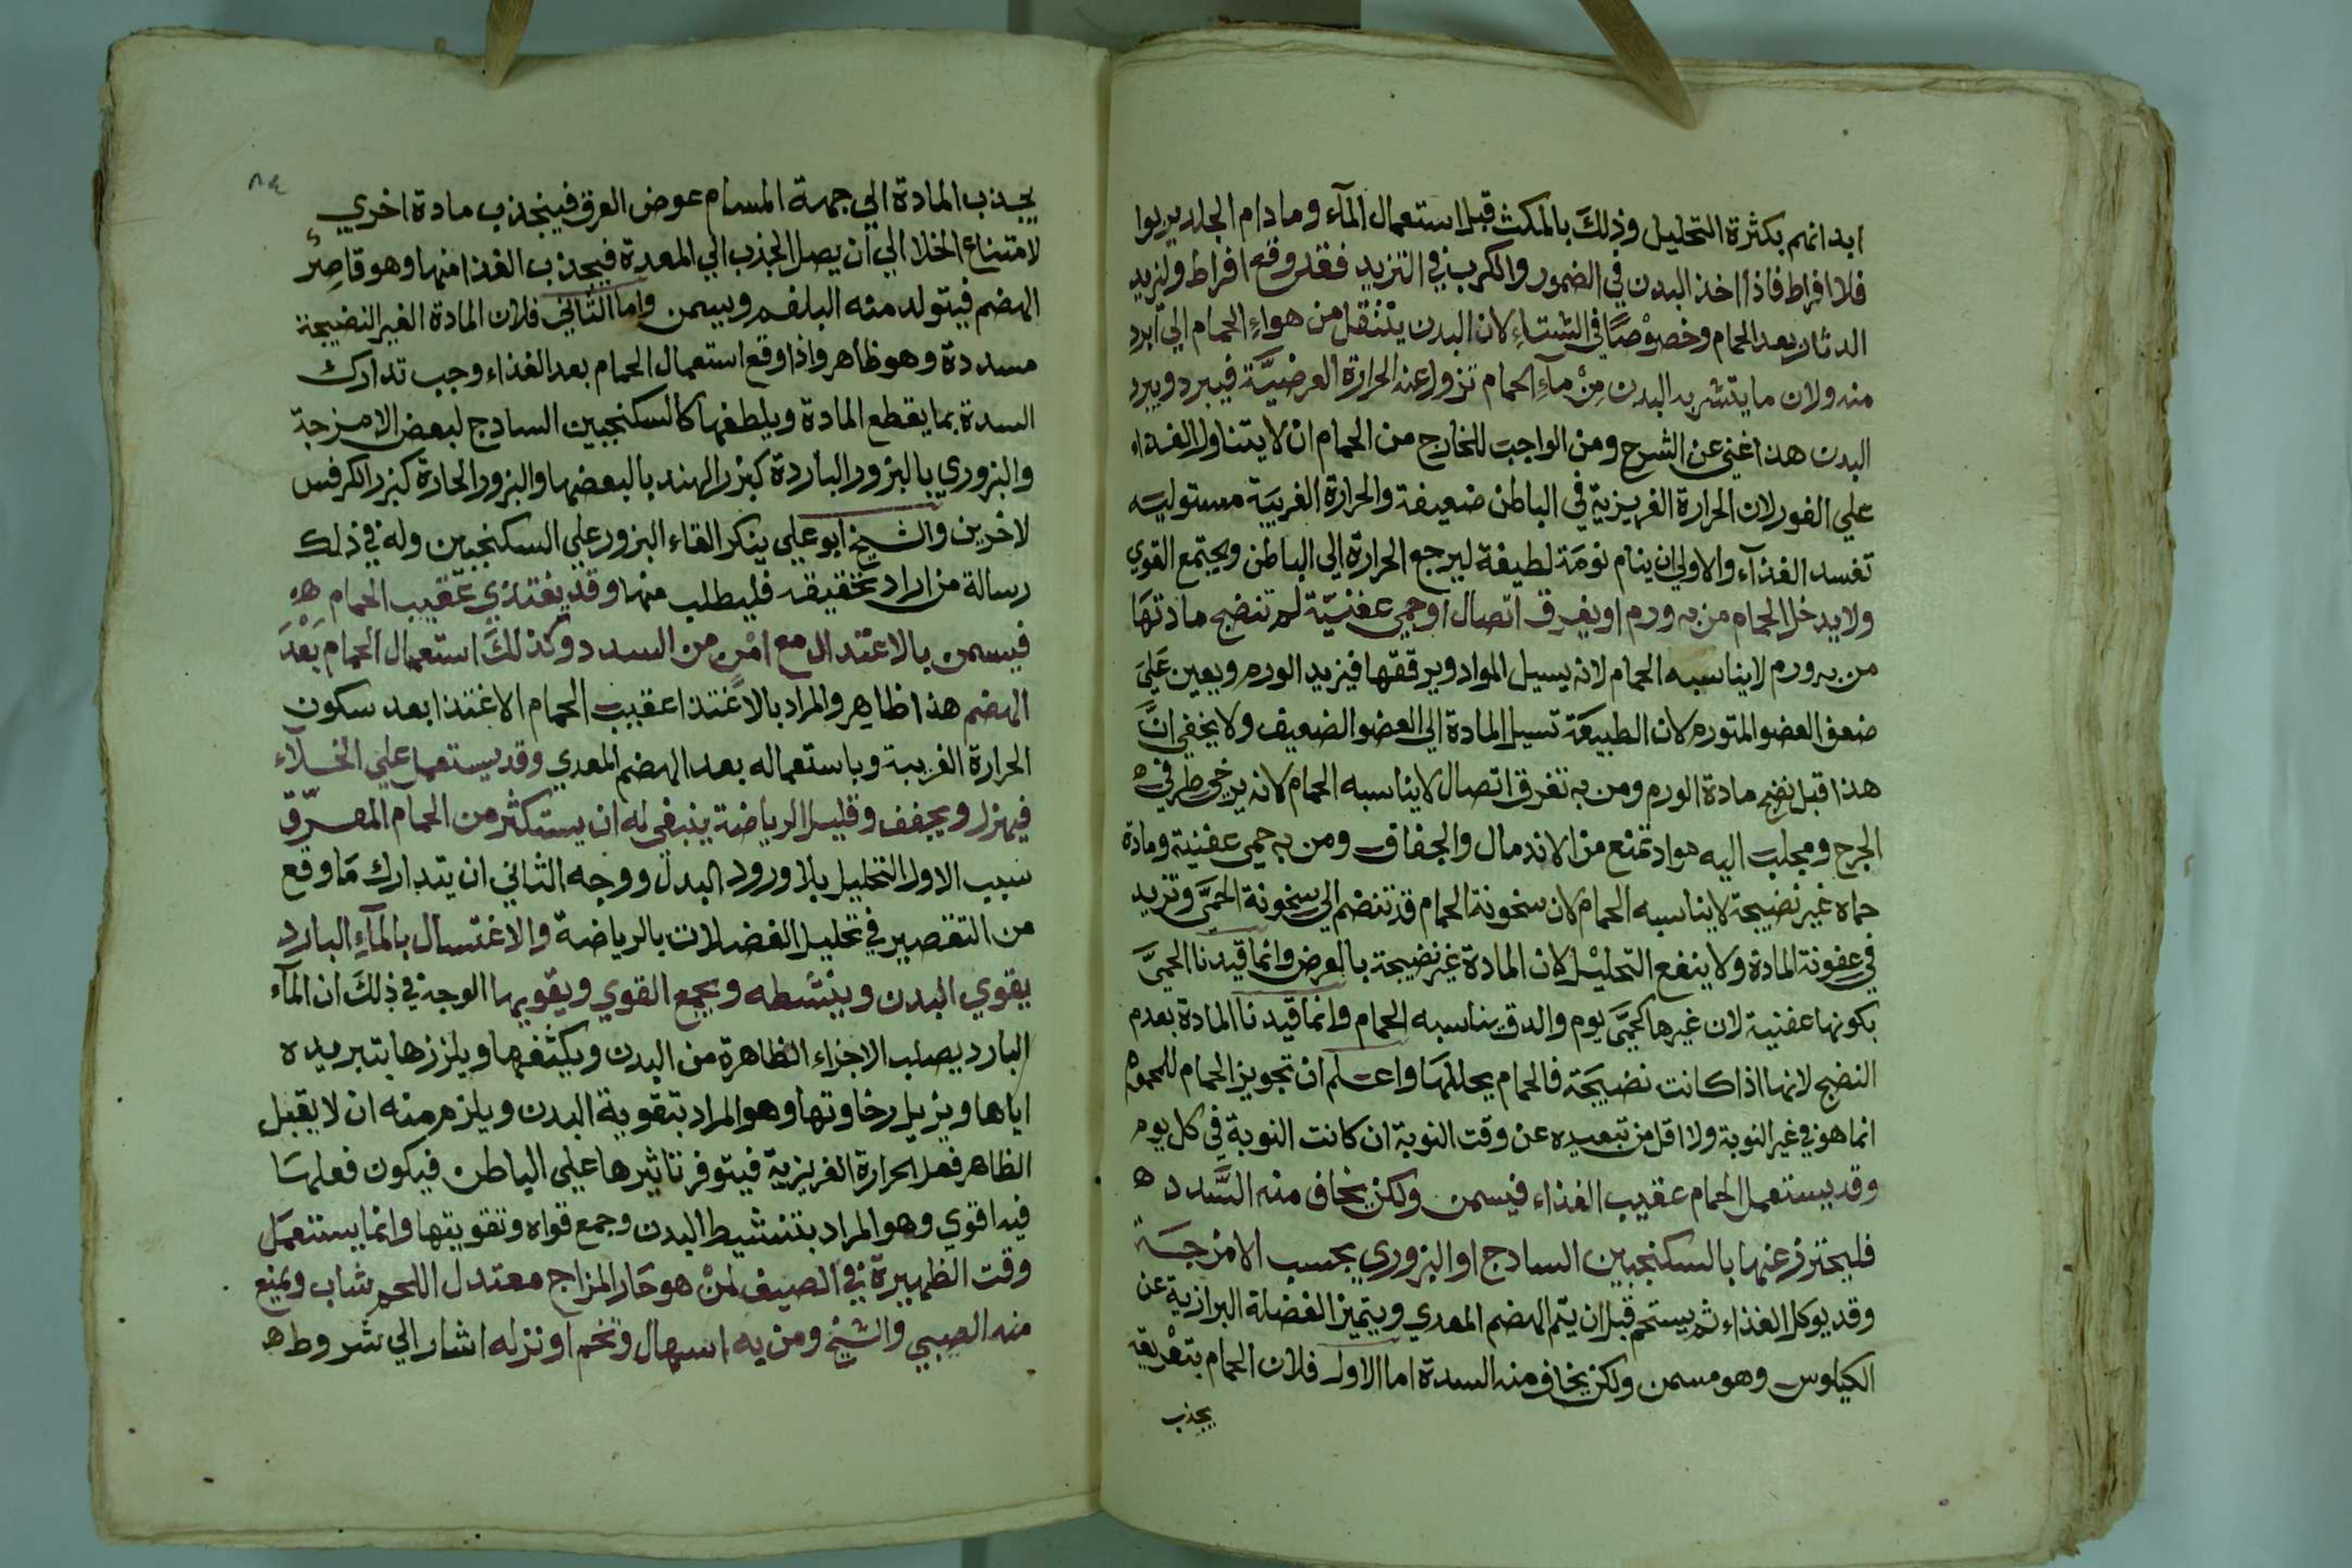 ابدانهم بكثرة التحليل وذلك بالمكث قبل استعمال المآء وما دام الجلد يربوا
فلا افراط فاذا اخذ البدن في الضمور والكرب في التزيد فقد وقع افراط وليزيد
الدثار بعد الحمام وخصوصًا في الشتاءِ لان البدن يتنقل من هواءِ الحمام الي ابرد
منه ولان ما يتشربه البدن مِنْ مآءِ الحمام تزول عنه الحرارة العرضيَّة فيبرد ويبرد
البدن هذا غني عن الشرح ومن الواجب للخارج من الحمام ان لا يتناول الغذاء
علي الفور لان الحرارة الغريزية في الباطن ضعيفة والحرارة الغريبَة مستوليه
تفسد الغذآء والاولي ان ينام نومَة لطيفة ليرجع الحرارة الي الباطن ويجتمع القوي
ولا يدخل الحمام من به ورم او يفرق اتصال او حمي عفنيّة لم تنضج مادتهَا
من به ورم لا يناسبه الحمام لانه يسيل المواد ويرققها فيزيد الورم ويعين عَليَ
ضعف العضو المتورم لان الطبيعَة تسيل المادة الي العضو الضعيف ولا يخفي انَّ
هذا قبل نضج مادة الورم ومن به تفرق اتصال لا يناسبه الحمام لانه يرخي طرفي ه
الجرح ويجلب اليه مواد تمنع من الاندمال والجفاف ومن به حمي عفنية ومادة
حماه غير نضيجة لا يناسبه الحمام لان سخونة الحمام قد تنضم الي سخونة الحمَّي وتزيد
في عفونة المادة ولا ينفع التحليْل لان المادة غير نضيجة بالعرض وانما قيدنا الحميَّ
بكونها عفنية لان غيرها كحمَّي يوم والدق يناسبه الحمام وانما قيدنا المادة بعدم
النضج لانها اذا كانت نضيجَة فالحمام يحللهَا واعلم ان تجويز الحمام للمحموم
انما هو في غير النوبة ولا اقل من تبعيده عن وقت النوبة ان كانت النوبة في كل يوم
وقد يستعمل الحمام عقيب الغذاء فيسمن ولكن يخاف منه السَّدد ه
فليحترز عنها بالسكنجبين السادج او البزوري بحسب الامزجَة
وقد يوكل الغذاء ثم يستحم قبل ان يتم الهضم المعدي ويتميز الفضلة البرازية عن
الكيلوس وهو مسمن ولكن يخاف منه السدة اما الاول فلان الحمام بتعْريقه
يجذب
٨٤
يجذب المادة الي جهة المسام عوض العرق فينجذب مادة اخري
لامتناع الخلا الي ان يصل الجذب الي المعدة فيجذب الغذا منها وهو قاصِرُ
الهضم فيتولد منه البلغم ويسمن واما الثاني فلان المادة الغير النضيجة
مسددة وهو ظاهر واذا وقع استعمال الحمام بعد الغذاء وجب تدارك
السدة بما يقطع المادة ويلطفها كالسكنجبين السادج لبعض الامزجة
والبزوري بالبزور الباردة كبزر الهندبا لبعضها والبزور الحارة كبزر الكرفس
لاخرين والشيخ ابو علي ينكر القاء البزور علي السكنجبين وله في ذلك
رسالة من اراد تحقيقه فليطلب منها وقد يغتذي عقيب الحمام ه
فيسمن بالاعتدال مع امْنٍ من السدد وكذلكَ استعمال الحمام بَعْدَ
الهضم هذا ظاهر والمراد بالاغتذا عقيب الحمام الاغتذا بعد سكون
الحرارة الغريبة وباستعماله بعد الهضم المعدي وقد يستعمل علي الخلآء
فيهزل ويجفف وقليل الرياضة ينبغي له ان يستكثر من الحمام المعرّق
سبب الاول التحليل بلا ورود البدل ووجه الثاني ان يتدارك مَا وقع
من التقصير في تحليل الفضلات بالرياضة والاغتسال بالمآءِ البارد
يقوي البدن وينشطه ويجمع القوي ويقويها الوجه في ذلكَ ان المآء
البارد يصلب الاجزاء الظاهرة من البدن ويكثفها ويلززها بتبريده
اياها ويزيل رخاوتها وهو المراد بتقوية البدن ويلزم منه ان لا يقبل
الظاهر فعل الحرارة الغريزية فيتوفر تاثيرها علي الباطن فيكون فعلهَا
فيه اقوي وهو المراد بتنشيط البدن وجمع قواه وتقويتها وانما يستعمَل
وقت الظهيرة في الصيف لمنْ هو حَار المزاج معتدل اللحم شاب ويمنع
منه الصبي والشيخ ومن به اسهال وتخم او نزله اشار الي شروط ه